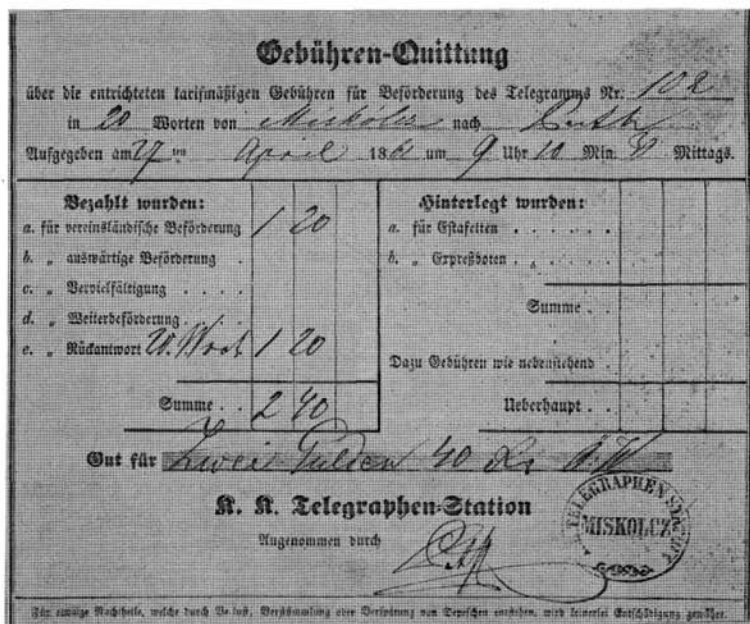 Gebühren-Quittung
über die entrichteten tarifmäßigen Gebühren für Beförderung des Telegramms Nr. 102
in 20 Worten von Miskolcz nach Pesth
Aufgegeben am 27ten April 186 um 9 Uhr 10 Min. Mittags.
Bezahlt wurden:
a. für vereinsländische Beförderung 1 20
b. „ auswärtige Beförderung .
c. „ Vervielfältigung . . . .
d. „ Weiterbeförderung . .
e. „ Rückantwort 20 Wort 1 20
Summe . . 2 40
Hinterlegt wurden:
a. für Estafetten . . . . . .
b. „ Expreßboten . . . . . .
Summe . .
Dazu Gebühren wie nebenstehend .
Ueberhaupt . .
Gut für Zwei Gulden 40 Kr Ö.W
K. K. Telegraphen-Station
Angenommen durch
TELEGRAPHEN STATION
MISKOLCZ
Für etwaige Nachtheile, welche durch Verlust, Verstümmlung oder Verspätung von Depeschen entstehen, wird keinerlei Entschädigung gewährt.